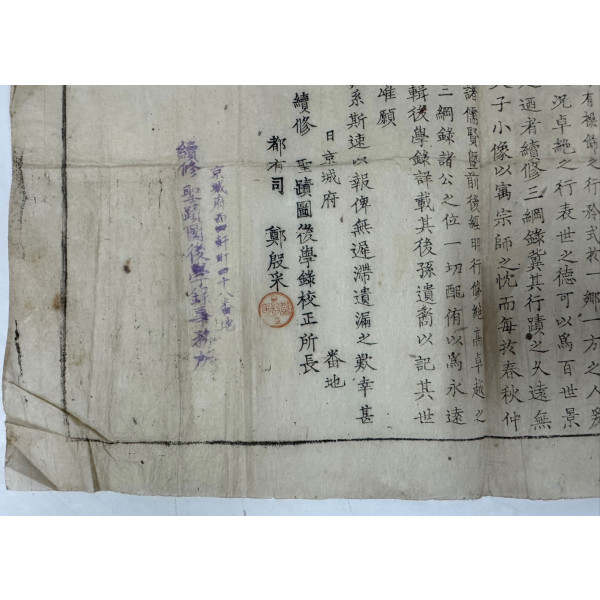 有操飭之行矜式於一鄉一方之人
況卓絶之行表世之德可以爲百世景
迺者續修三綱錄冀其行蹟之久遠無
子小像以寓宗師之忱而每於春秋仲
諸儒賢曁前後經明行修純高卓越之
三綱錄諸公之位一切配侑以爲永遠
輯後學錄詳載其後孫遺裔以記其世
唯願
系斯速以報俾無遲滯遺漏之歎幸甚
日京城府 番地
續修 聖蹟圖後學錄校正所長
都有司 鄭殷采
京城府 町四十八番地
續修 聖蹟圖後學錄事務所